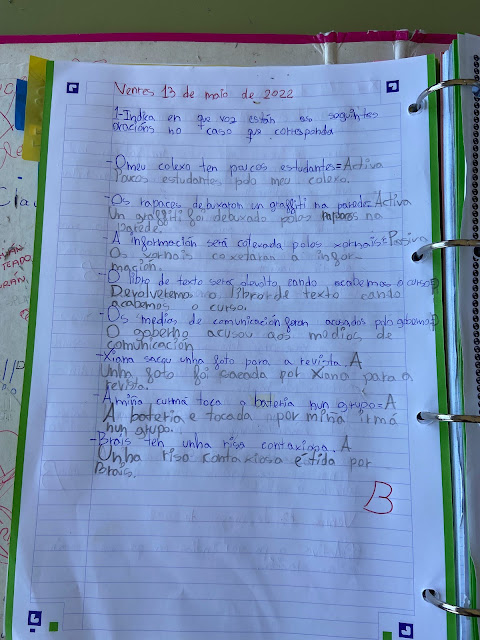 Venres 13 de maio de 2022
1-Indica en que voz están as seguintes
oracións no caso que corresponda
-O meu colexo ten poucos estudantes=Activa
Poucos estudantes polo meu colexo.
-Os rapaces debuxaron un graffiti na parede=Activa
Un graffiti foi debuxado polos rapaces na
parede.
-A información será colexada polos xornais=Pasiva
Os xornais colexaran a infor-
mación.
-O libro de texto será devolto cando acabemos o curso=P
Devolveremos o libro de texto cando
acabemos o curso.
-Os medios de comunicación foron acusados polo goberno=P
O goberno acusou aos medios de
comunicación
-Xiana sacou unha foto para a revista. A
Unha foto foi cacada por Xiana para a
revista.
-A miña curmá toca a bateria nun grupo=A
A bateria e tocada por miña irmá
nun grupo.
-Brais ten unha risa contaxiosa. A
Unha risa contaxiosa é tida por
Brais.
B